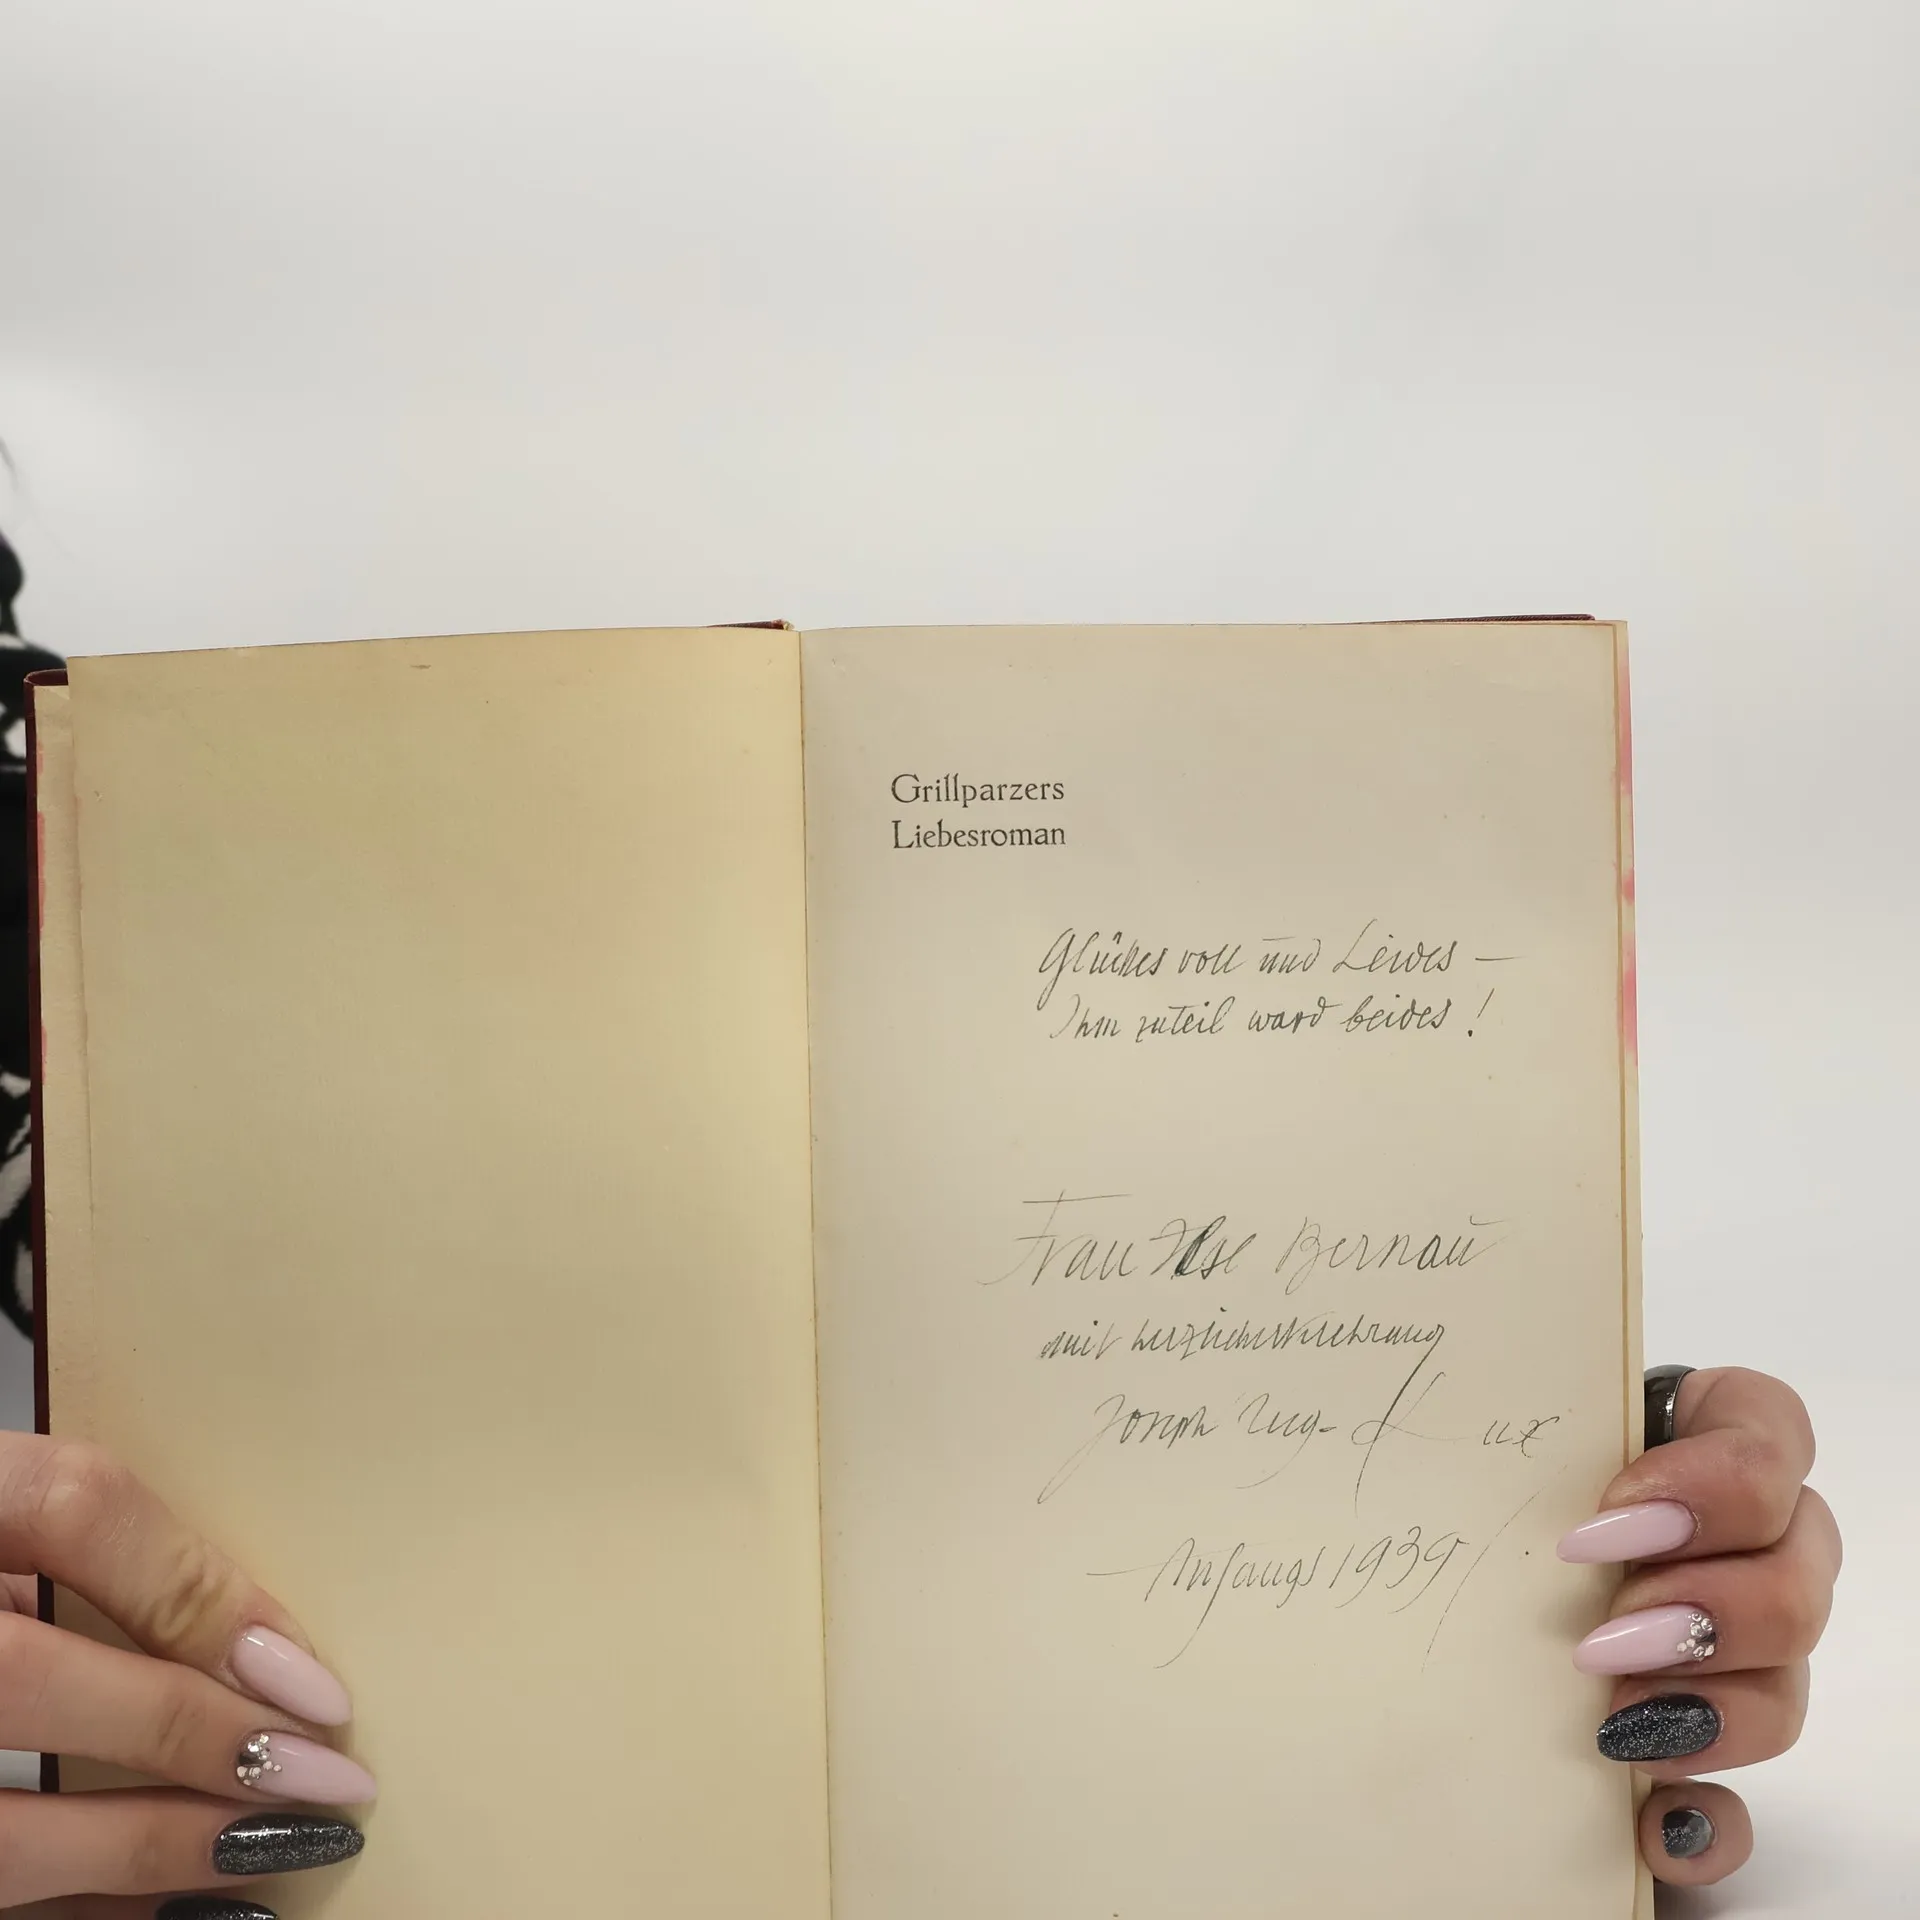 Grillparzers
Liebesroman
Glückes voll und Leides —
Ihm zuteil ward beides!
Frau Ilse Bernau
mit herzlicher Verehrung
Joseph Aug. Lux
— Anfangs 1939 /.